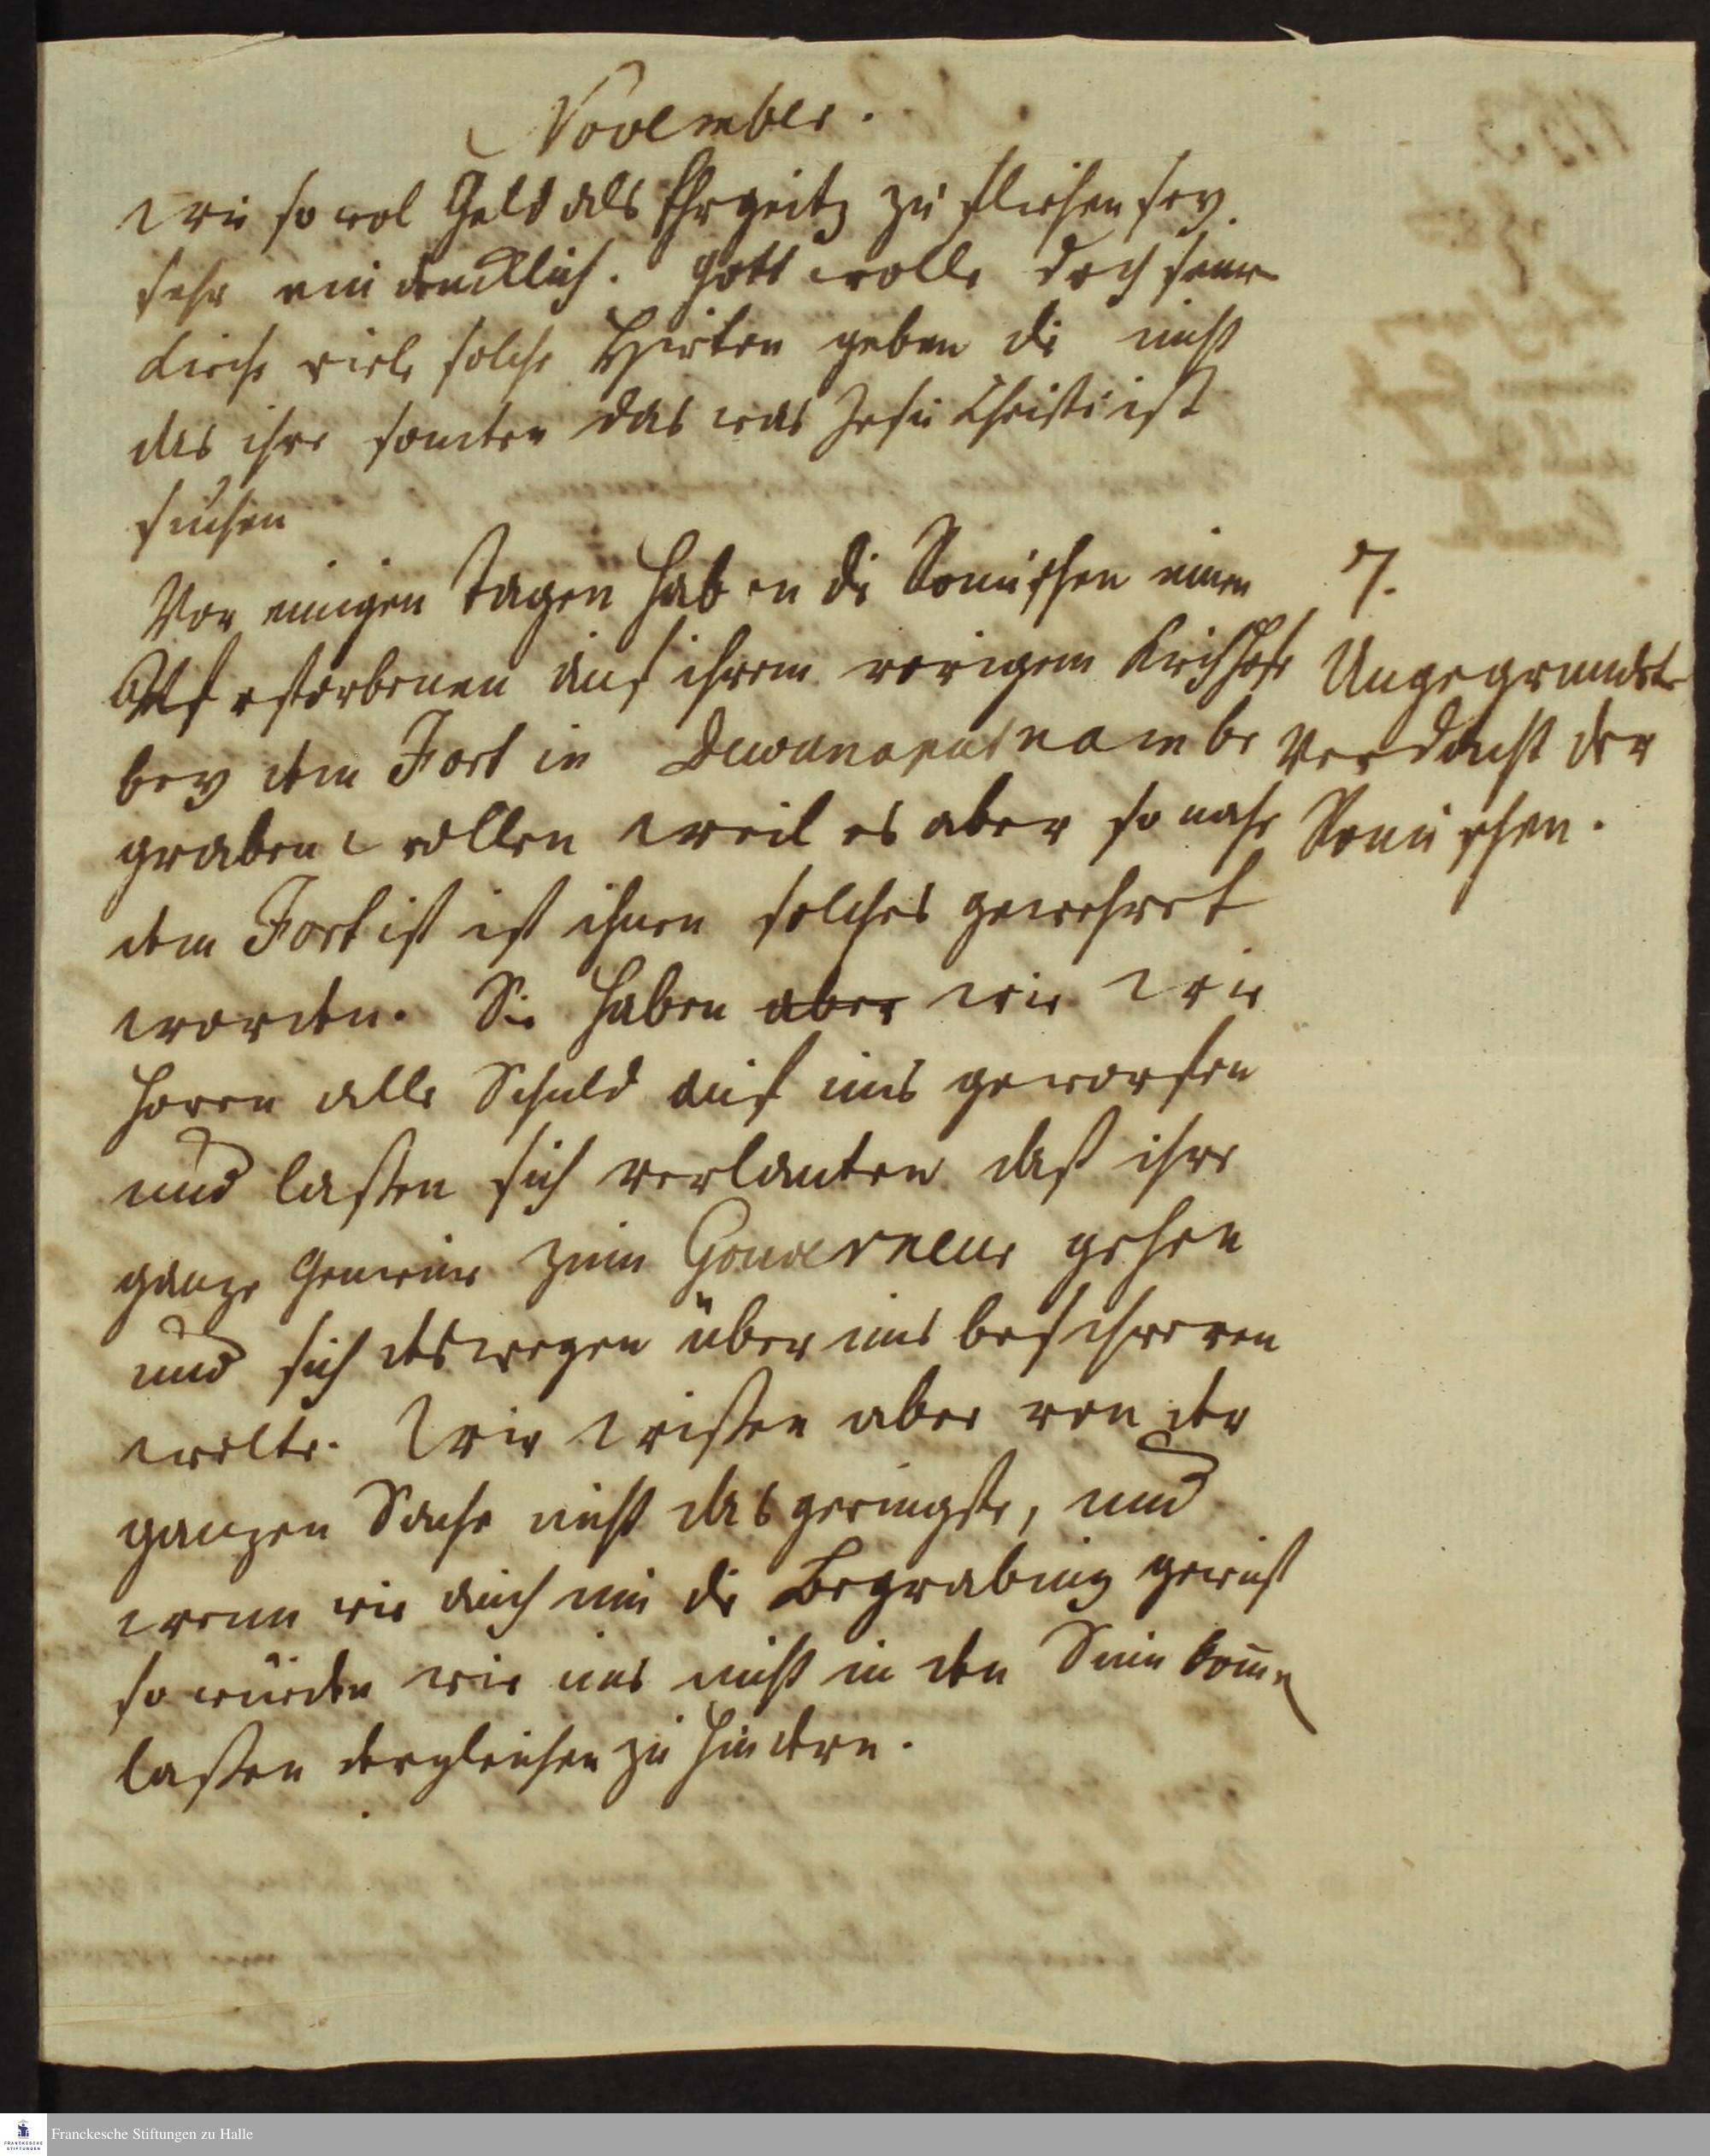 November.
wie so wol Geld als Ehrgeitz zu fliehen sey
sehr eindencklich. Gott wolle doch seiner
Kirche viele solche Hirten geben die nicht
das ihre sondern das was Jesu Christi ist
suchen
Vor einigen Tagen haben die Römischen einen
7.
verstorbenen auf ihrem vorigem Kirchhofe
Ungegründete
bey dem Fort in begraben wollen
Verdacht der
weil es aber so nahe
Römischen.
dem Fort ist ist ihnen solches gewehret
worden. Sie haben aber wie wir
hören alle Schuld auf uns geworfen
und laßen sich verlauten daß ihre
gantze Gemeine zum Gouverneur gehen
und sich deswegen über uns beschweren
wolte. Wir wißen aber von der
gantzen Sache nicht das geringste, und
wenn wir auch um die Begrabung gewust
so würden wir uns nicht in den Sinn kom̄en
laßen dergleichen zu hindern.
Franckesche Stiftungen zu Halle